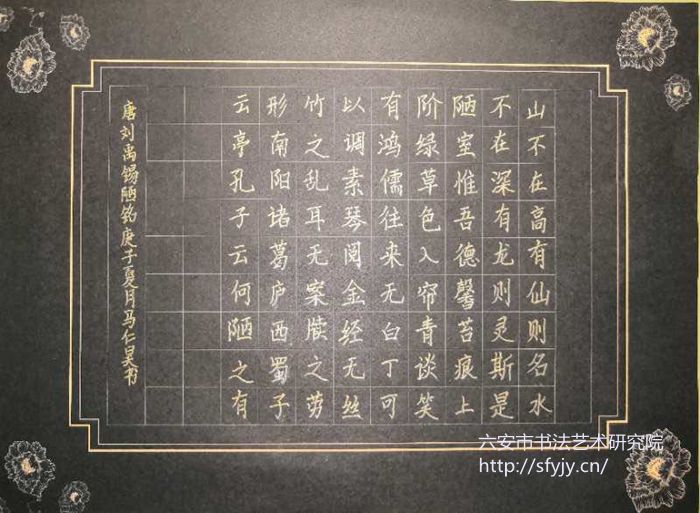 山不在高有仙则名水
不在深有龙则灵斯是
陋室惟吾德馨苔痕上
阶绿草色入帘青谈笑
有鸿儒往来无白丁可
以调素琴阅金经无丝
竹之乱耳无案牍之劳
形南阳诸葛庐西蜀子
云亭孔子云何陋之有
唐刘禹锡陋铭庚子夏月马仁昊书
六安市书法艺术研究院
http://sfyjy.cn/